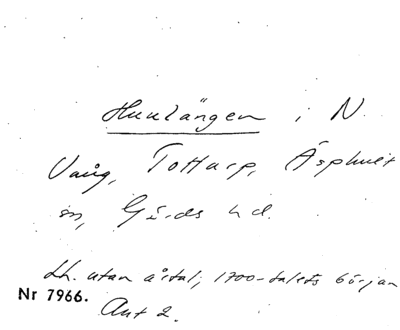 Huulängen i N.
Vång, Tottarp, Äsphult
sn, Gärds hd.
Lh. utan årtal, 1700-talets början
Nr 7966.
Avt 2.